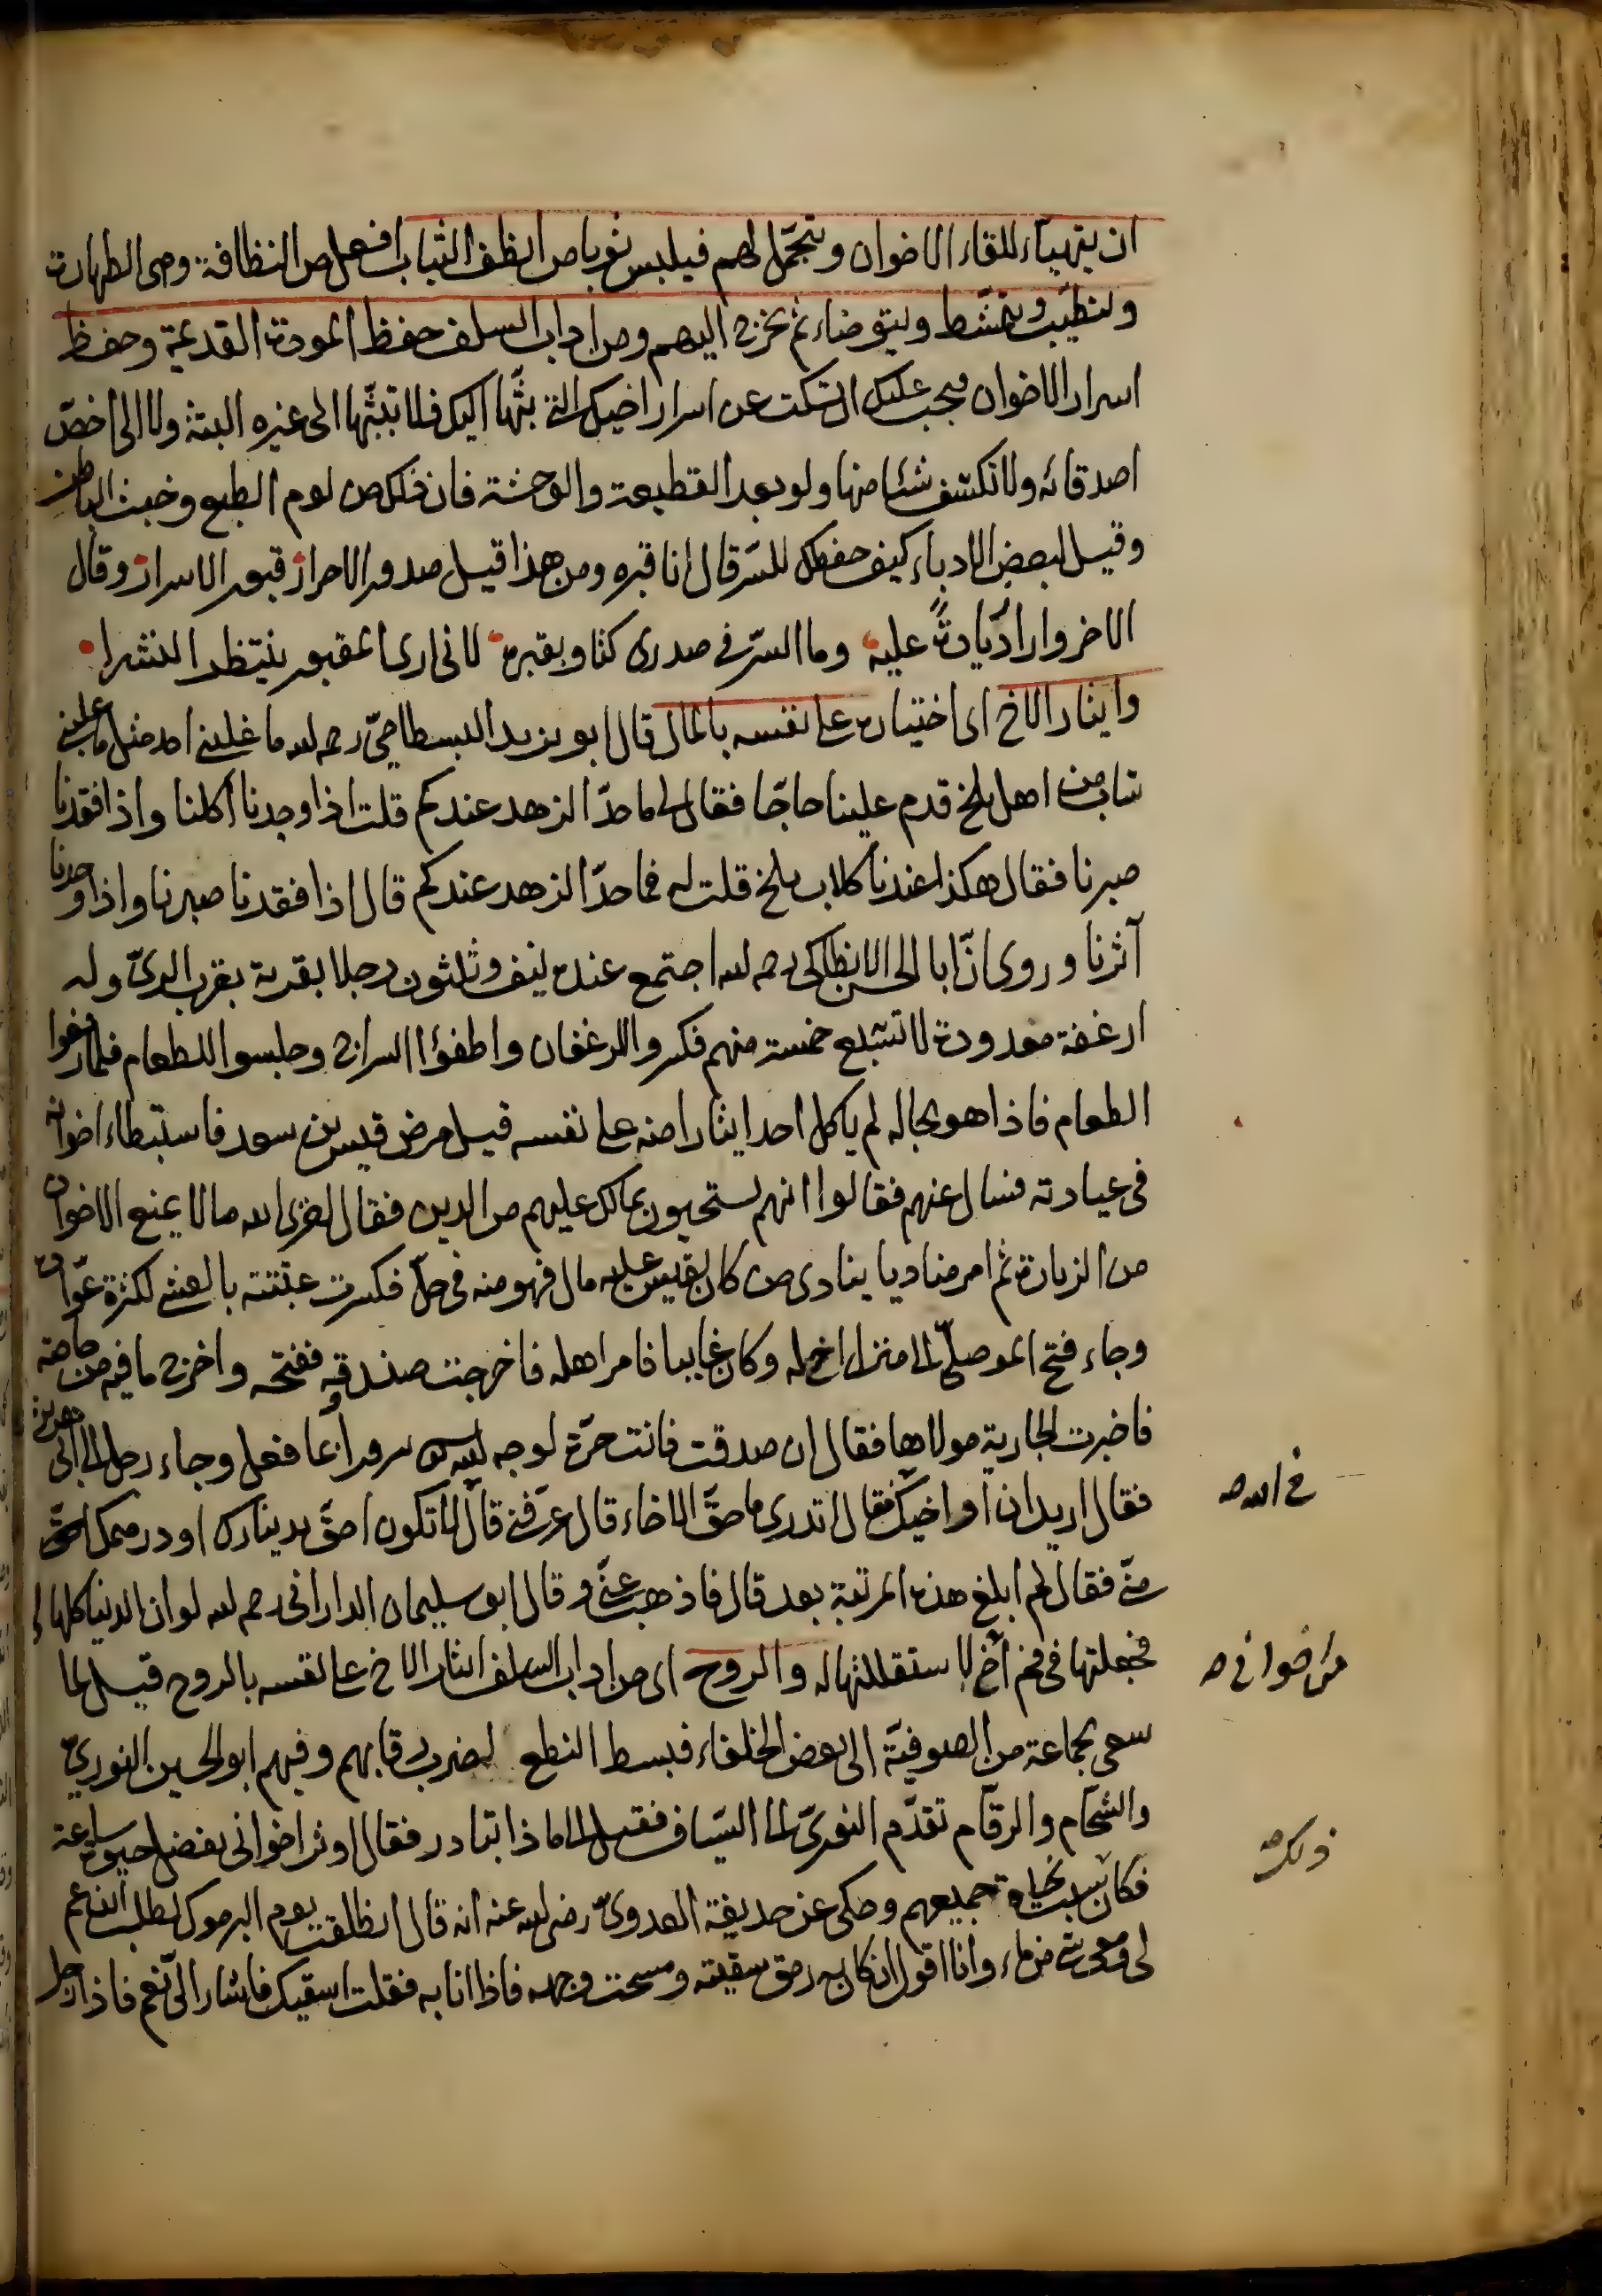 ان يتهيأء للقاء الاخوان ويتجمّل لهم فيلبس ثوبا من انظف الثياب افعل من النظافة وهى الطهارة
وليتطيّب ويتمشّط وليتوضاء ثم يخرج اليهم ومن اداب السلف حفظ المودة القديمة وحفظ
اسرار الاخوان فيجب عليك ان تسكت عن اسرار اخيك التى بثّها اليك فلا تبثّها الى غيره البتة ولا الى اخصّ
اصدقائه ولا تكشف شئا منها ولو بعد القطيعة والوحشة فان ذلك من لوم الطبع وخبث الباطن
وقيل لبعض الادباء كيف حفظك للسّر قال انا قبره ومن هذا قيل صدور الاحرار قبور الاسرار وقال
الاخر وارادّ يادةً عليه وما السّر فى صدرى كثاو بقبره لانى ارى المقبور ينتظر النشرا
وايثار الاخ اى اختياره على نفسه بالمال قال ابو يزيد البسطامىّ رحمه الله ما غلبنى احد مثل ما غلبنى
شاب من اهل بلخ قدم علينا حاجّا فقال لى ما حدّ الزهد عندكم قلت اذا وجدنا اكلنا واذا فقدنا
صبرنا فقال هكذا عندنا كلاب بلخ قلت له فما حدّ الزهد عندكم قال اذا فقدنا صبرنا واذا وجدنا
آثرنا وروى انّ ابا الحسن الانطاكى رحمه الله اجتمع عنده نيف وثلثون رجلا بقرية بقرب الرىّ وله
ارغفة معدودة لا تشبع خمسة منهم فكسروا الرغفان واطفؤا السراج وجلسوا للطعام فلما رفعوا
الطعام فاذا هو بحاله لم ياكل احد ايثارا منه على نفسه قيل مرض قيس بن سعد فاستبطاء اخوانه
فى عيادته فسال عنهم فقالوا انهم يستحيون بما لك عليهم من الدين فقال اخزى الله مالا يمنع الاخوان
من الزيارة ثم امر مناديا ينادى من كان لقيس عليه مال فهو منه فى حلّ فكسرت عتبته بالعشى لكثرة عوّاده
وجاء فتح الموصلىّ الى منزل اخ له وكان غايبا فامر اهله فاخرجت صندوقه ففتحه واخرج ما فيه من حاجته
فاخبرت الجارية مولاها فقال ان صدقت فانت حرّة لوجه الله سرورا بما فعل وجاء رجل الى ابى هريرة
فقال اريد ان اواخيك فقال اتدرى ما حقّ الاخاء قال عرّفنى قال لا تكون احقّ بدينارك او درهمك
منّى فقال لم ابلغ هذه المرتبة بعد قال فاذهب عنّى وقال ابو سليمان الدارانى رحمه الله لو ان الدنيا كلها لى
فجعلتها فى فم اخ لاستقللتها له والروح اى من اداب السلف ايثار الاخ على نفسه بالروح قيل لما
سعى بجماعة من الصوفيّة الى بعض الخلفاء فبسط النطع لضرب رقابهم وفيهم ابو الحسين النورىّ
والشحّام والرقّام تقدّم النورىّ الى السّياف فقيل له لماذا تبادر فقال اوثر اخوانى بفضل حيوة ساعة
فكان سبب نجاة جميعهم وحكى عن حذيفة العدوىّ رضى الله عنه انه قال انطلقت يوم اليرموك لطلب ابن عم
لى ومعى شئ من ماء وانا اقول ان كان به رمق سقيته ومسحت وجهه فاذا انا به فقلت اسقيك فاشار الىّ نعم فاذا رجل
فى الله صح
من اخوانى صح
ذلك صح